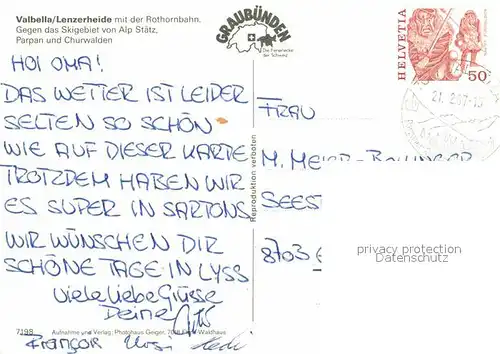 Valbella/Lenzerheide mit der Rothornbahn.
Gegen das Skigebiet von Alp Stätz,
Parpan und Churwalden
GRAUBÜNDEN
Die Ferienecke
der Schweiz
HELVETIA
50
HOI OMA!
DAS WETTER IST LEIDER
SELTEN SO SCHÖN
WIE AUF DIESER KARTE
TROTZDEM HABEN WIR
ES SUPER IN SARTONS
WIR WÜNSCHEN DIR
SCHÖNE TAGE IN LYSS
Viele liebe Grüsse
Deine
François Ursi
Reproduktion verboten
FRAU
M. MEIER-BOLLINGER
SEEST
8703
privacy protection
Datenschutz
7198 Aufnahme und Verlag: Photohaus Geiger, 7018 Flims-Waldhaus